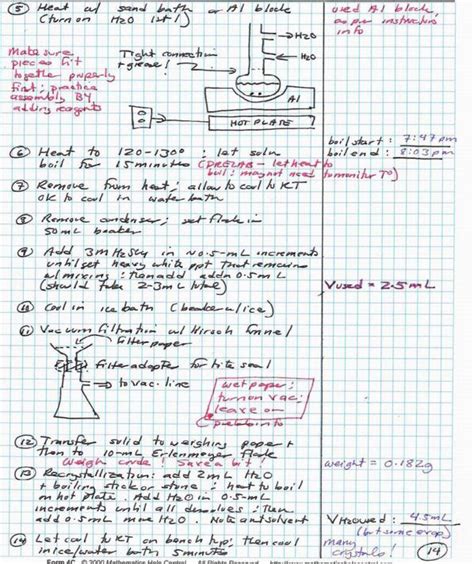 ⑤ Heat w/ sand bath or Al block
(turn on H2O 1st!)
used Al block,
as per instructors
info
Make sure
pieces fit
together properly
first; practice
assembly B4
adding reagents
Tight connection
+ grease!
→H2O
←H2O
Al
HOT PLATE
⑥ Heat to 120-130°: let soln
boil for 15 minutes (PRELAB - let heat to
boil; may not need to monitor T°)
boil start: 7:47 pm
boil end: 8:03 pm
⑦ Remove from heat; allow to cool to RT
OK to cool in water bath
⑧ Remove condenser; set flask in
50 mL beaker
⑨ Add 3M H2SO4 in ~0.5-mL increments
until get heavy white ppt that remains
w/ mixing: then add addn 0.5 mL
(should take 2-3mL total)
Vused = 2.5 mL
⑩ Cool in ice bath (beaker w/ ice)
⑪ Vacuum filtration w/ Hirsch funnel
filter paper
filter adapter for tite seal
→ to vac. line
wet paper;
turn on vac;
leave on
⑫ Transfer solid to weighing paper +
then to 10-mL Erlenmeyer flask
Weigh crude! Save a bit!
weight = 0.182g
⑬ Recrystallization: add 2mL H2O
+ boiling stick or stone: heat to boil
on hot plate. Add H2O in 0.5-mL
increments until all dissolves: then
add 0.5 mL more H2O. Note amt solvent
VH2O used: 4.5 mL
⑭ Let cool to RT on bench top; then cool
in ice/water bath 5 minutes
many
crystals!
14
Form 4C © 2000 Mathematics Help Central All Rights Reserved